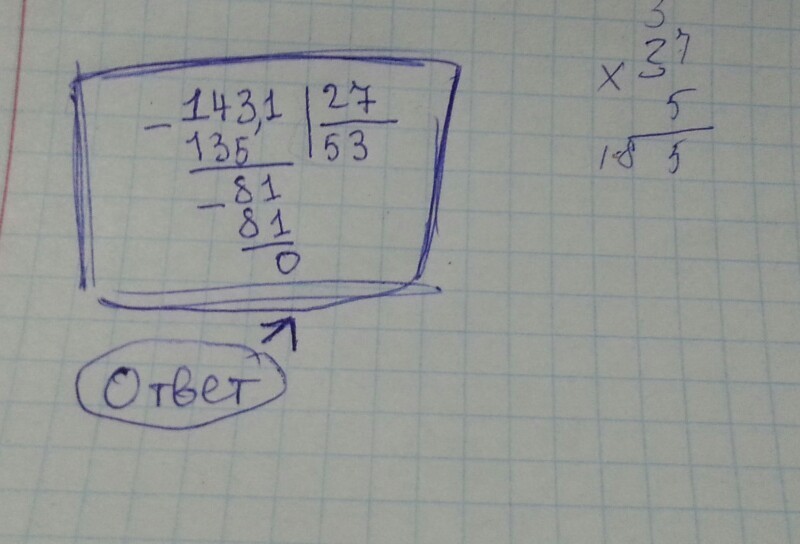 - 143,1 | 27
135 | 53
- 81
81
0
Ответ
3
× 37
5
185